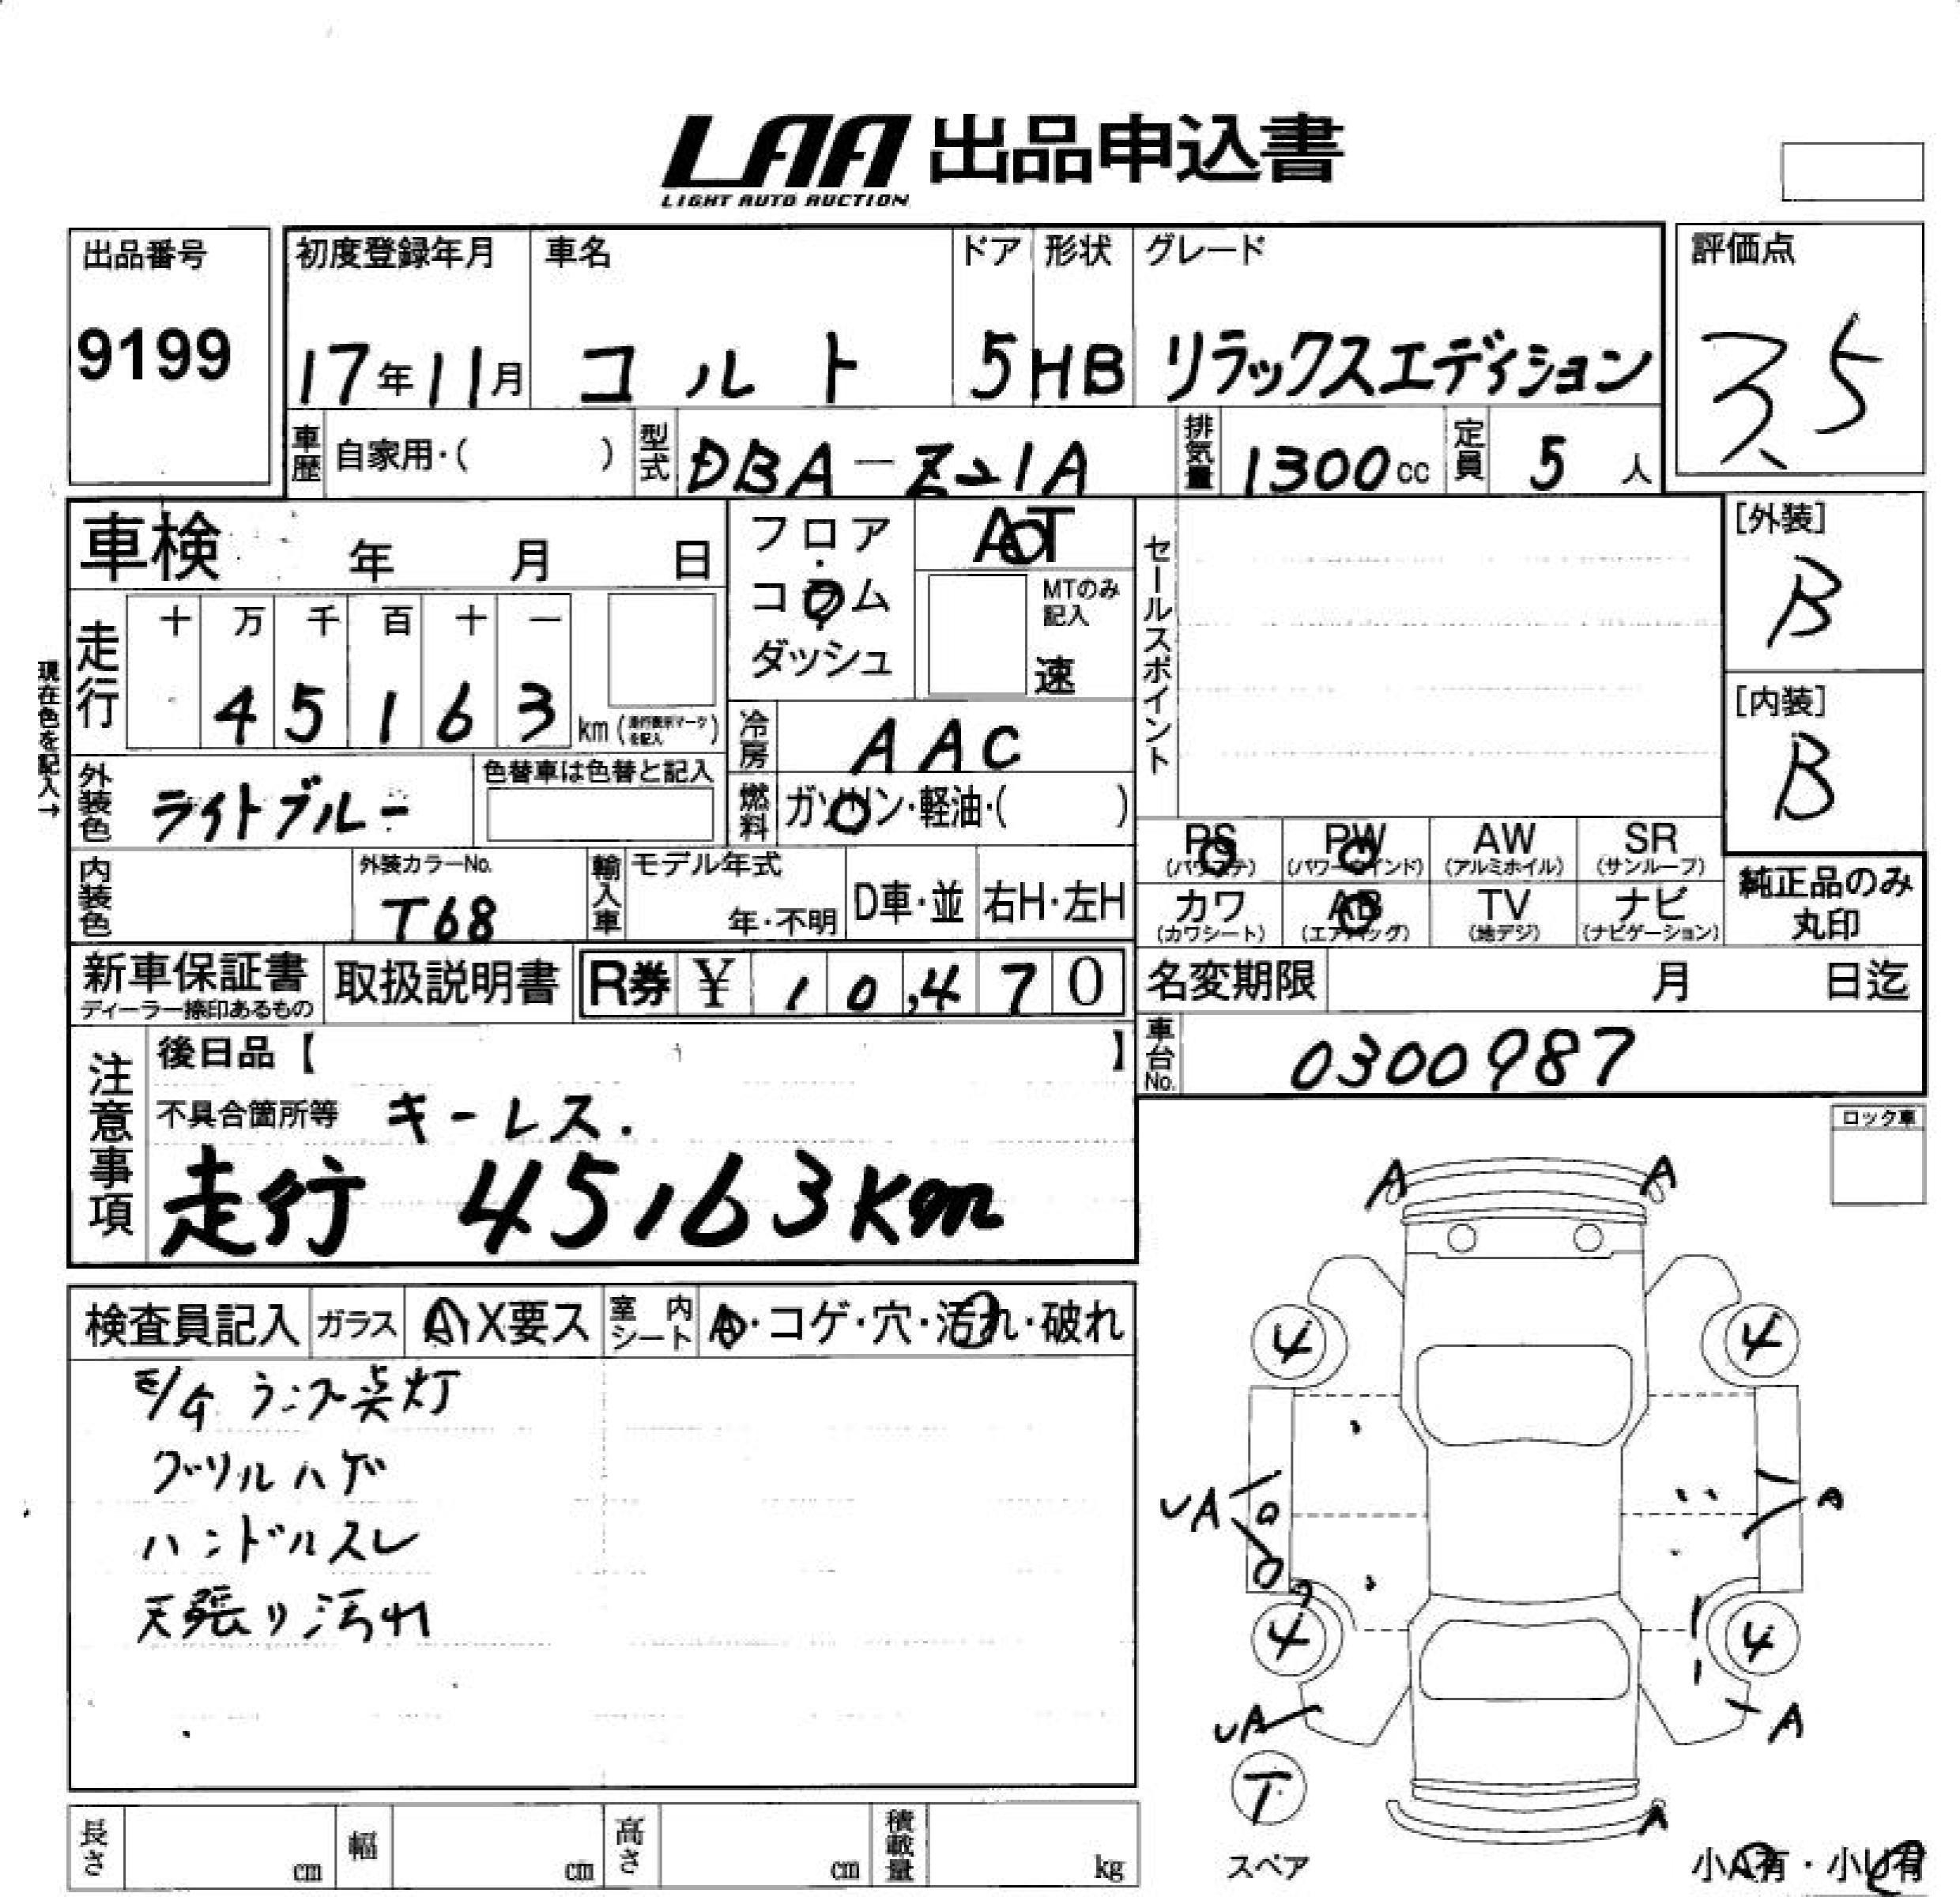 LAA 出品申込書
LIGHT AUTO AUCTION
出品番号
9199
初度登録年月
17年11月
車名
コルト
ドア
5
形状
HB
グレード
リラックスエディション
評価点
3.5
車歴 自家用・( )
型式 DBA-Z21A
排気量 1300cc
定員 5人
車検 年 月 日
フロア・コラム ダッシュ
AT
MTのみ記入
速
セールスポイント
[外装]
B
[内装]
B
現在色を記入→
走行
十 万 千 百 十 一
4 5 1 6 3 km (走行表示マークを記入)
冷房 AAC
外装色 ライトブルー
色替車は色替と記入
燃料 ガソリン・軽油・( )
内装色
外装カラーNo.
T68
輸入車
モデル年式
年・不明
D車・並
右H・左H
PS (パワステ)
PW (パワーウインド)
AW (アルミホイル)
SR (サンルーフ)
カワ (カワシート)
AB (エアバッグ)
TV (地デジ)
ナビ (ナビゲーション)
純正品のみ丸印
新車保証書
ディーラー捺印あるもの
取扱説明書
R券 ¥ 10,470
名変期限 月 日迄
車台No. 0300987
注意事項
後日品【 】
不具合箇所等 キーレス.
走行 45163km
ロック車
検査員記入
ガラス A X要ス
室内シート A・コゲ・穴・汚れ・破れ
ランプ点灯
グリルハゲ
ハンドルスレ
天張り汚れ
A A
4 4
UA A
4 4
UA A
T
スペア
A
小A有・小U有
長さ cm
幅 cm
高さ cm
積載量 kg